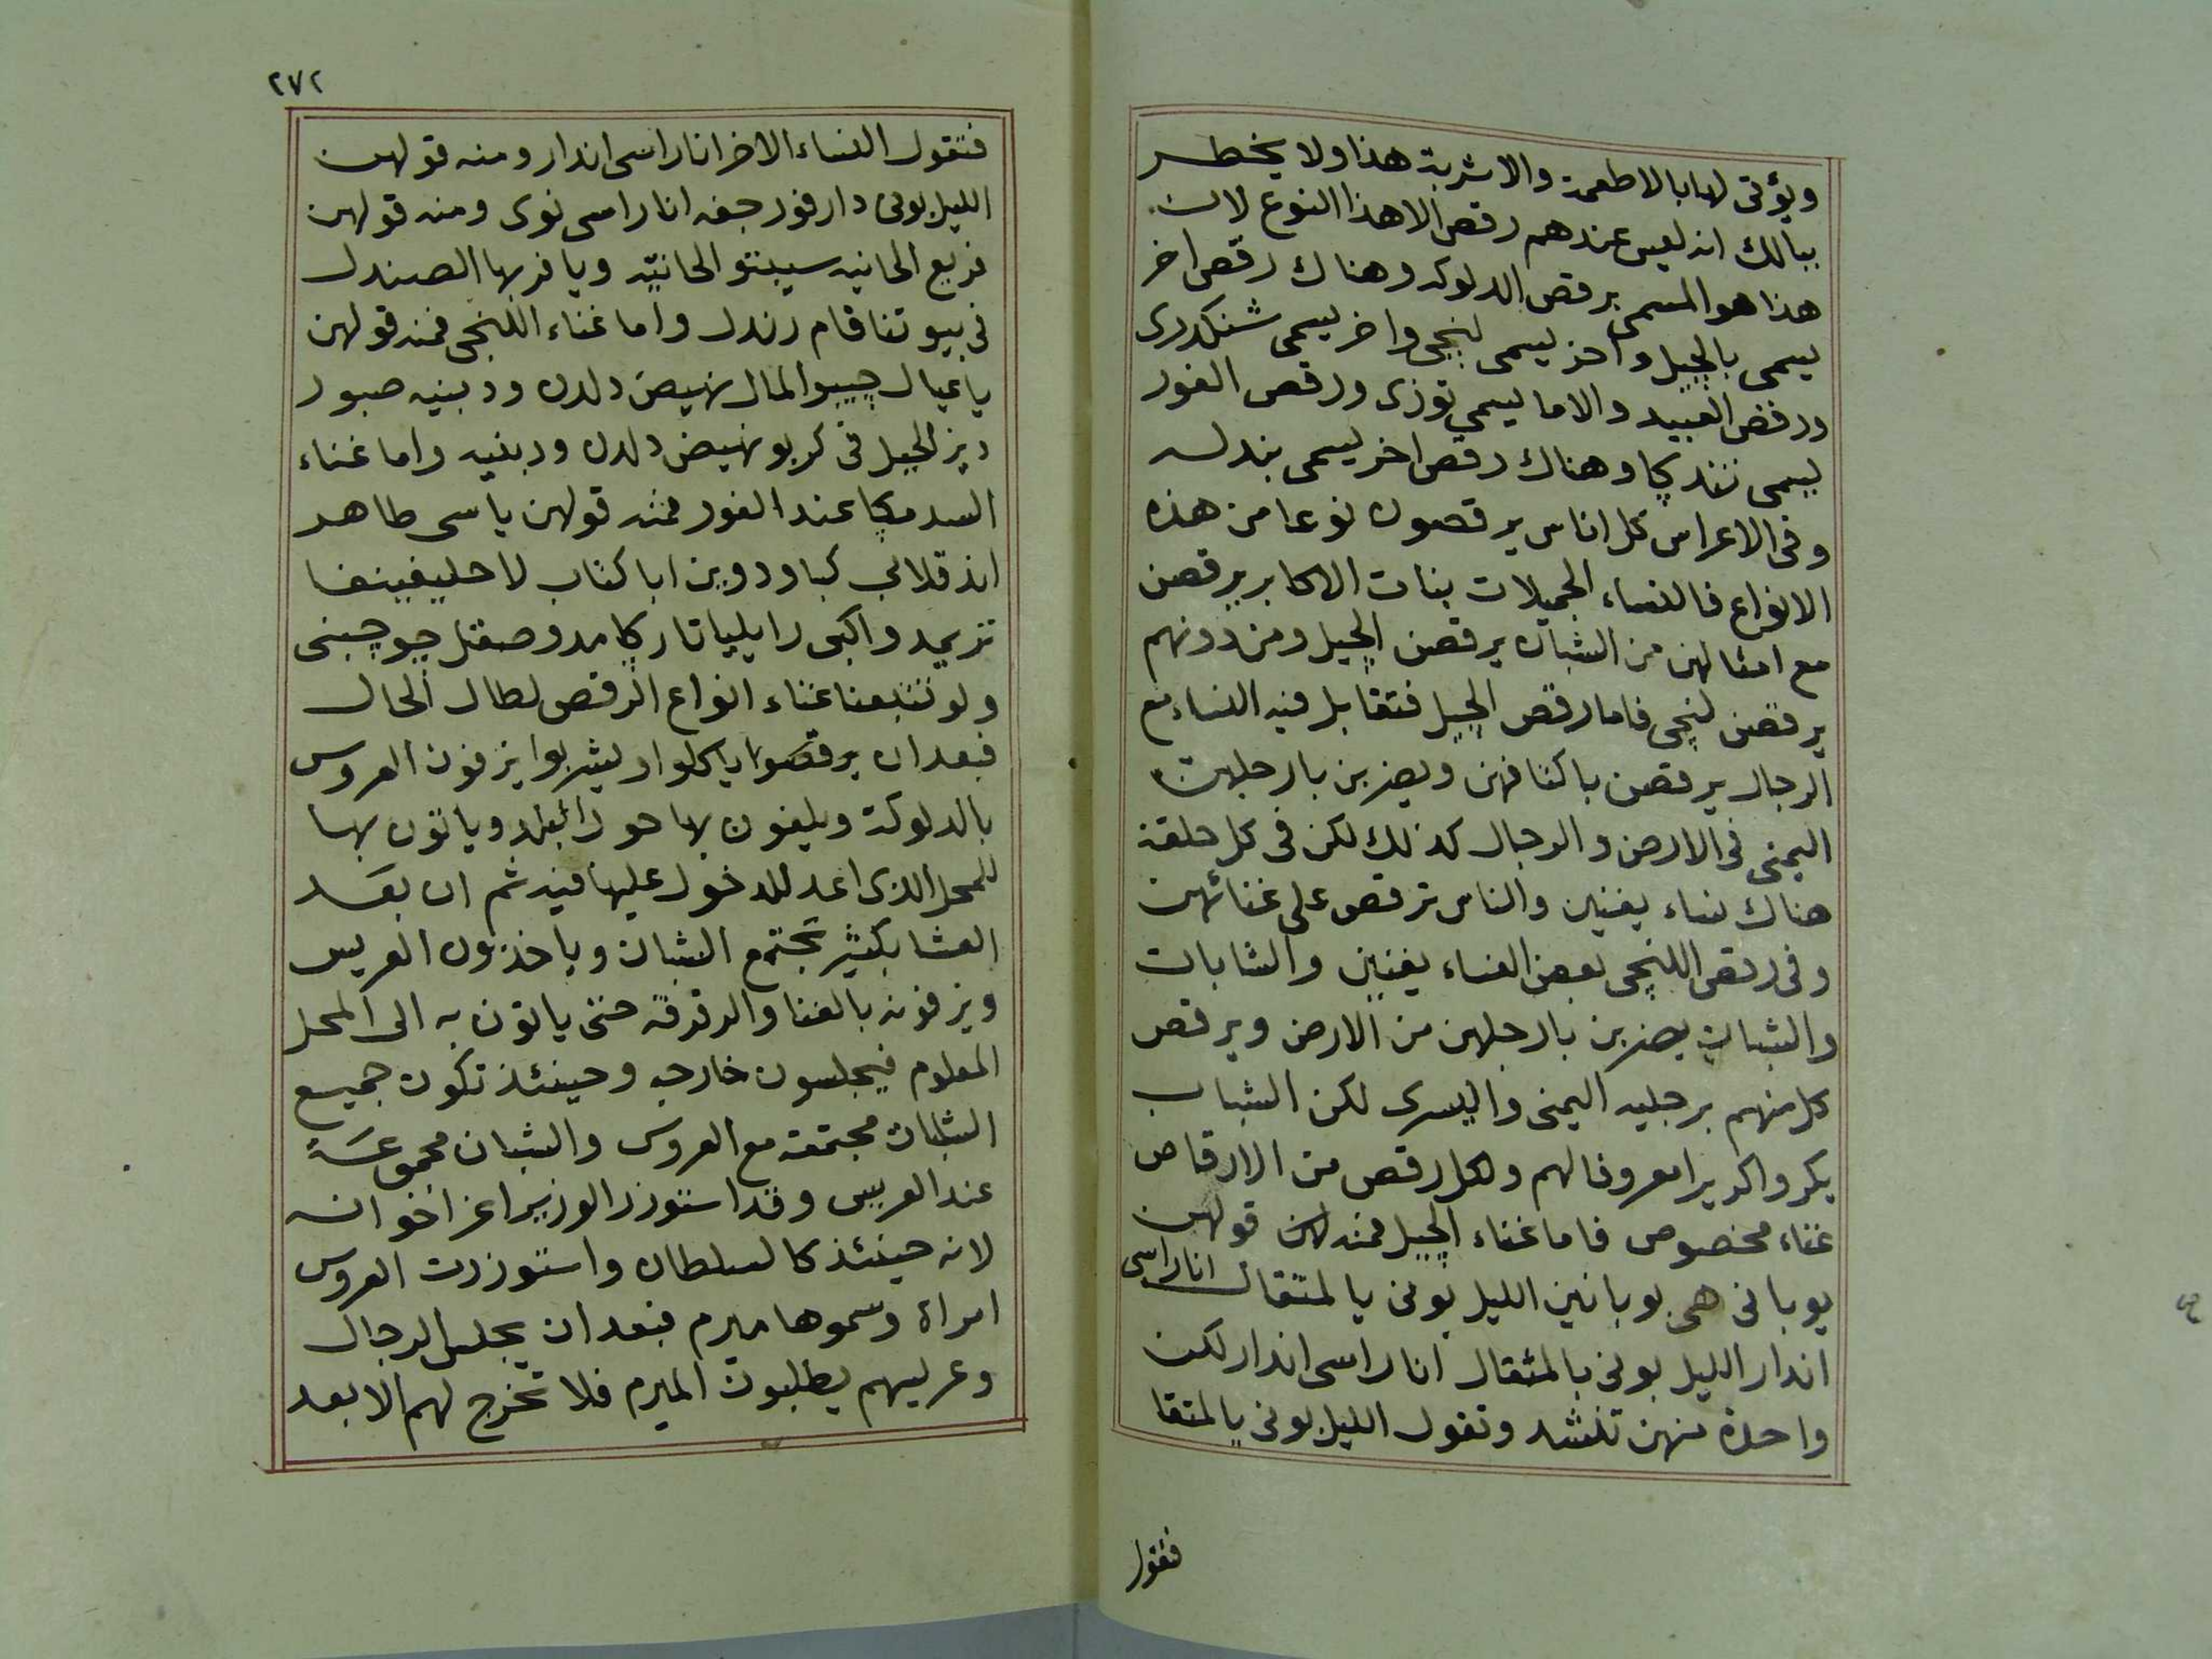 ويؤتى لها بالاطعمة والاشربة هذا ولا يخطر
ببالك انه ليس عندهم رقص الا هذا النوع لان
هذا هو المسمى برقص الدلوكه وهناك رقص اخر
يسمى بالجيل واخر يسمى لنجى واخر يسمى شنكدرى
ورقص العبيد والاما يسمى توزى ورقص الفور
يسمى تندكا وهناك رقص اخر يسمى بندله
وفى الاعراس كل اناس يرقصون نوعا من هذه
الانواع فالنساء الجميلات بنات الاكابر يرقصن
مع امثالهن من الشبان يرقصن الجيل ومن دونهم
يرقصن لنجى فاما رقص الجيل فتقابل فيه النساء مع
الرجال يرقصن باكتافهن ويضربن بارجلهن
اليمنى فى الارض والرجال كذلك لكن فى كل حلقة
هناك نساء يغنين والناس ترقص على غنائهن
وفى رقص اللنجى بعض النساء يغنين والشابات
والشبان يضربن بارجلهن من الارض ويرقص
كل منهم برجليه اليمنى واليسرى لكن الشباب
يكروا كريرا معروفا لهم ولكل رقص من الارقاص
غناء مخصوص فاما غناء الجيل فمنه لهن قولهن
يوبانى هى بوبانين الليل بونى يا لمتقال اناراسى
اندار الليل بونى يا لمثقال اناراسى اندار لكن
واحدة منهن تنشد وتقول الليل بونى يا لمتقا
فتقول
٢٧٢
فتقول النساء الاخر اناراسى اندار ومنه قولهن
الليل بونى دار فور جفه اناراسى نوى ومنه قولهن
فريع الحانيه سيبنتو الحانيه ويا فريها الصندل
فى بيوتنا قام رندل واما غناء اللنجى فمنه قولهن
يا عيال جيبو المال نهيض دلدن ودبنيه صبور
ديز الجيل فى كربو نهيض دلدن ودبنيه واما غناء
السدمكا عند الفور فمنه قولهن ياسى طاهر
اند قلابى كبا ودوين ابا كتاب لا حليفينفا
تزيمد واكبى رايليا تاركا مدو صقتل جوجبنى
ولو تتبعنا غناء انواع الرقص لطال الحال
فبعد ان يرقصوا ياكلوا ويشربوا يزفون العروس
بالدلوكة ويلفون بها حول البلد وياتون بها
للمحل الذى اعد للدخول عليها فيه ثم ان بعد
العشا بكثير تجتمع الشبان وياخذون العريس
ويزفونه بالغنا والرقرقه حتى ياتون به الى المحل
المعلوم فيجلسون خارجه وحينئذ تكون جميع
الشابات مجتمعة مع العروس والشبان مجموعة
عند العريس وقد استوزر الوزير اعز اخوانه
لانه حينئذ كالسلطان واستوزرت العروس
امراة وسموها ميرم فبعد ان يجلس الرجال
وعريسهم يطلبون الميرم فلا تخرج لهم الا بعد